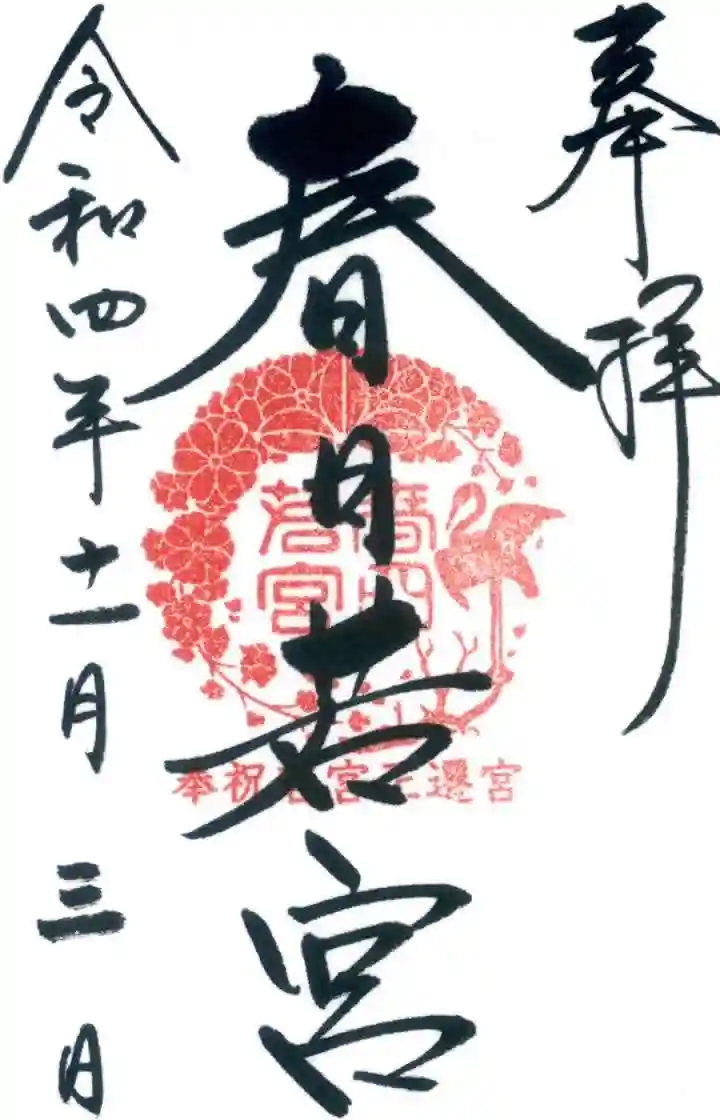 奉拝
春日若宮
令和四年十一月三日
春日
若宮
奉祝若宮正遷宮